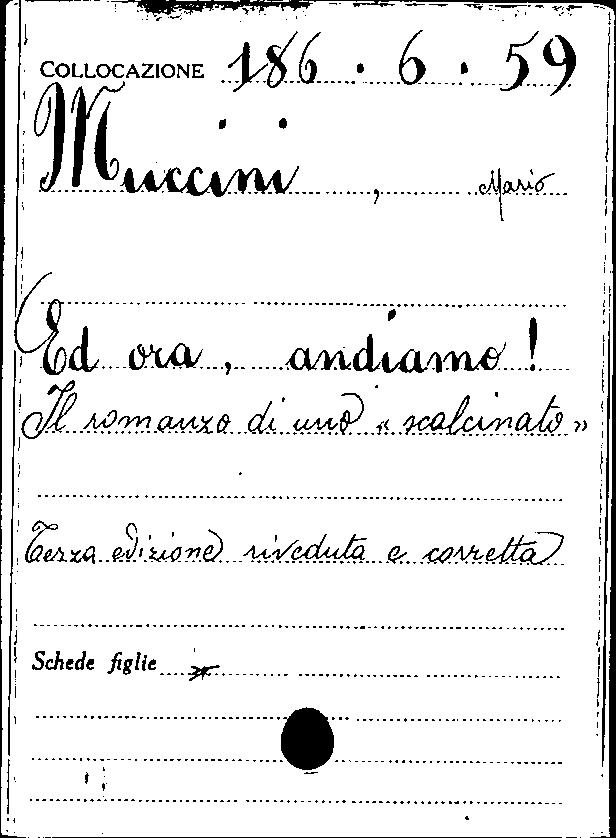 COLLOCAZIONE 186 . 6 . 59
Muccini , Mario
Ed ora, andiamo!
Il romanzo di uno « scalcinato »
Terza edizione riveduta e corretta
Schede figlie